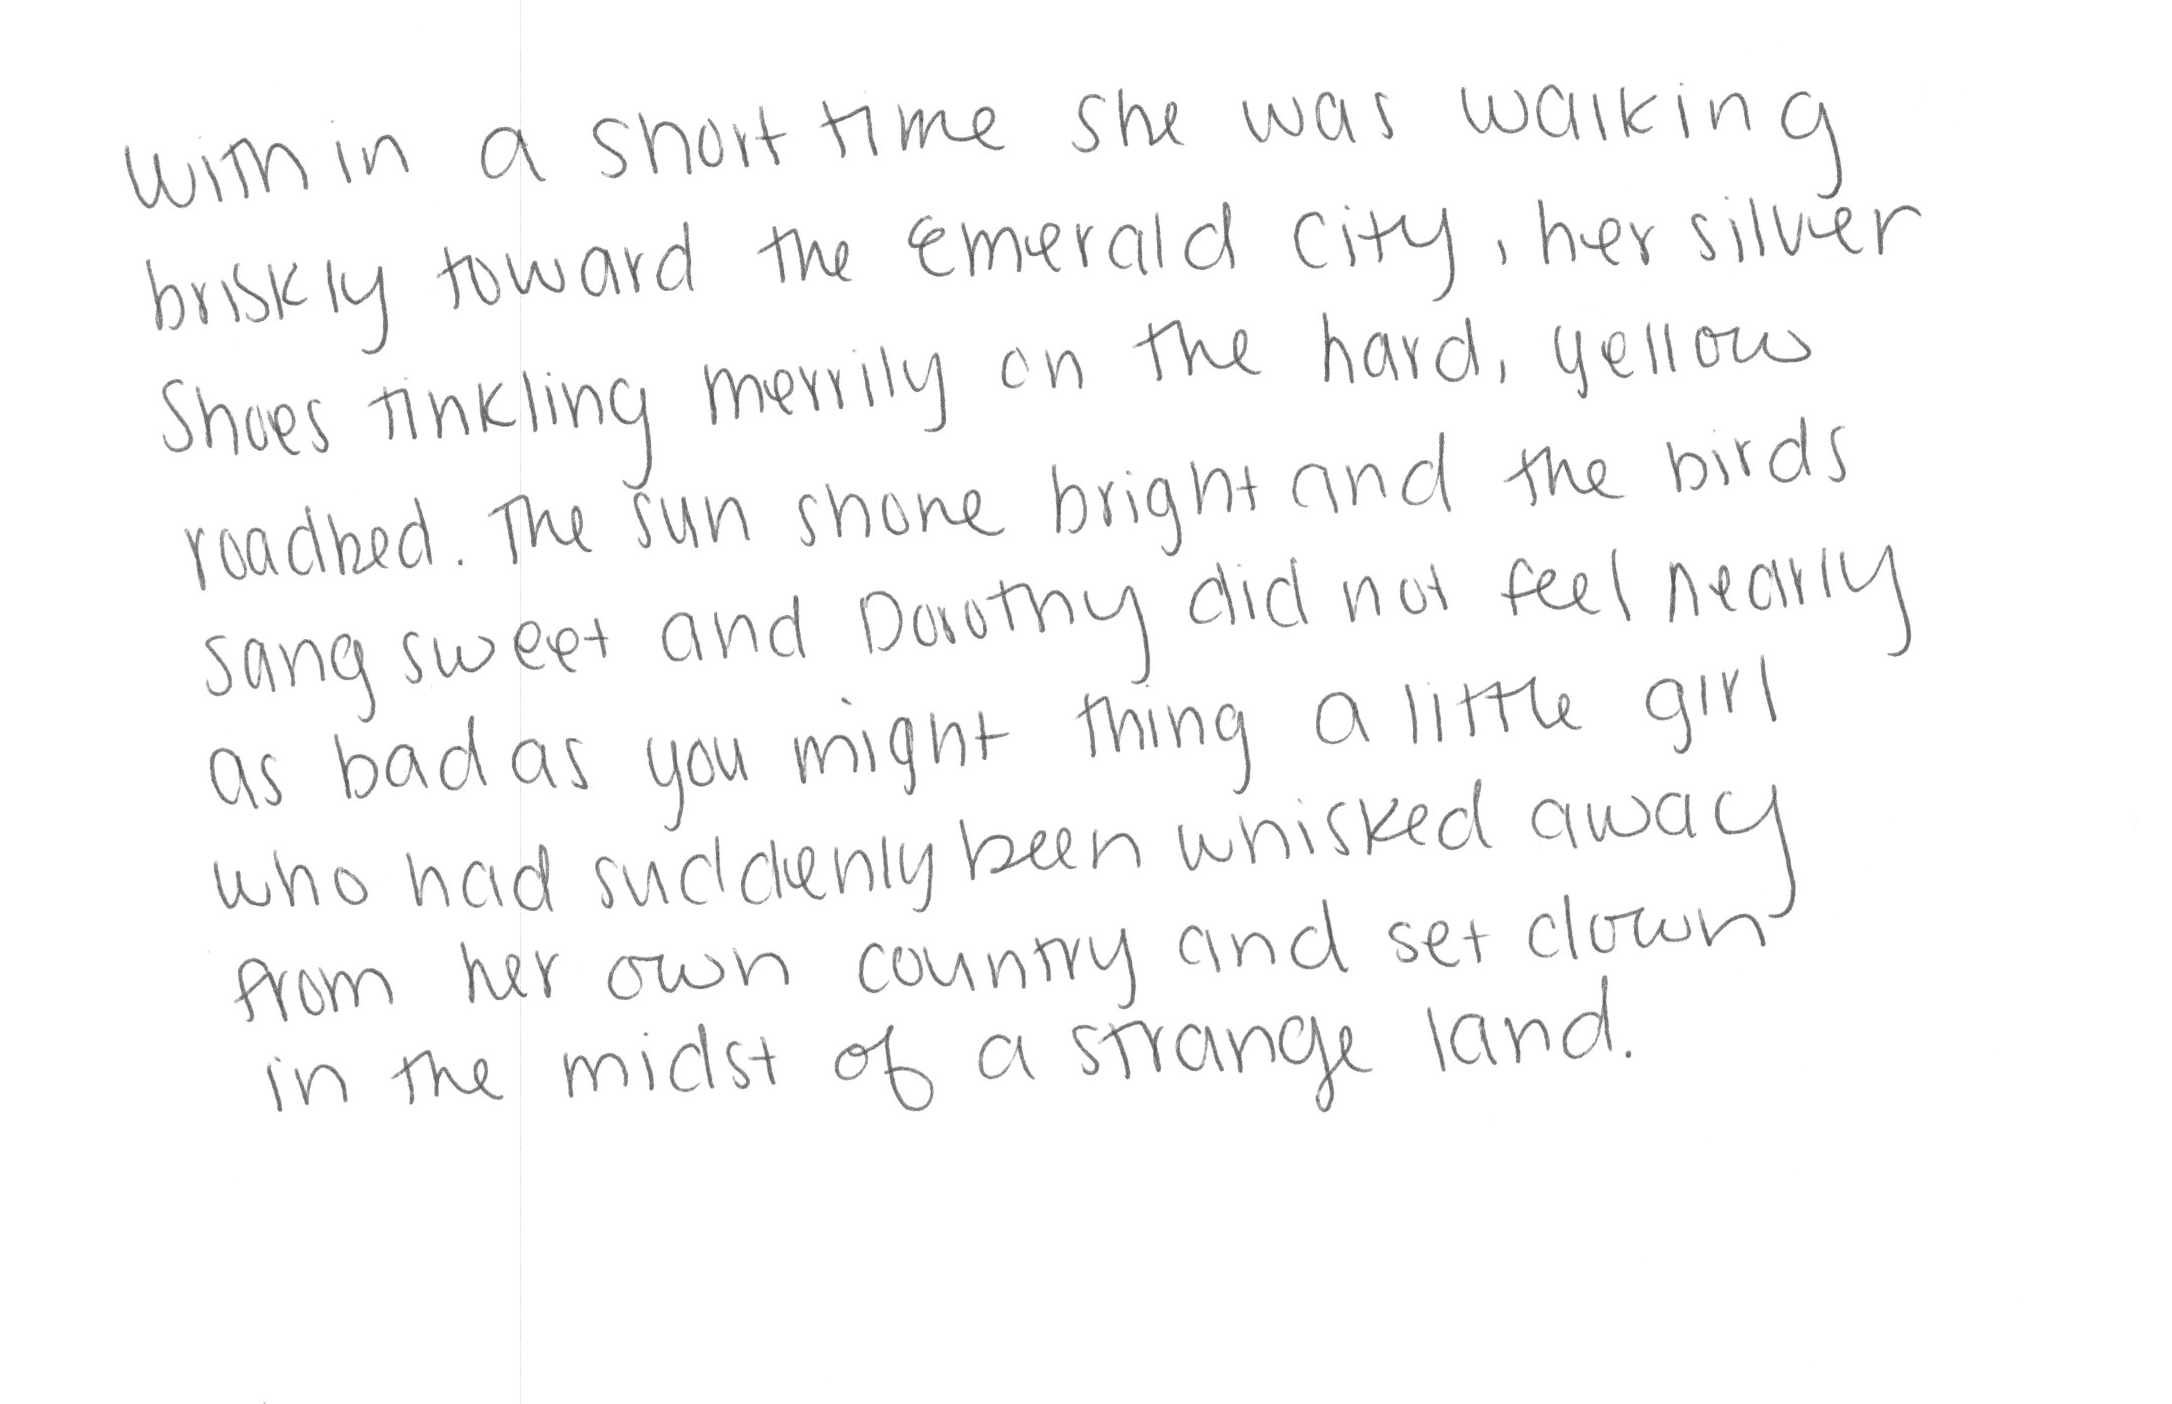 Within a short time she was walking
briskly toward the Emerald City, her silver
Shoes tinkling merrily on the hard, yellow
roadbed. The sun shone bright and the birds
sang sweet and Dorothy did not feel nearly
as bad as you might thing a little girl
who had suddenly been whisked away
from her own country and set down
in the midst of a strange land.